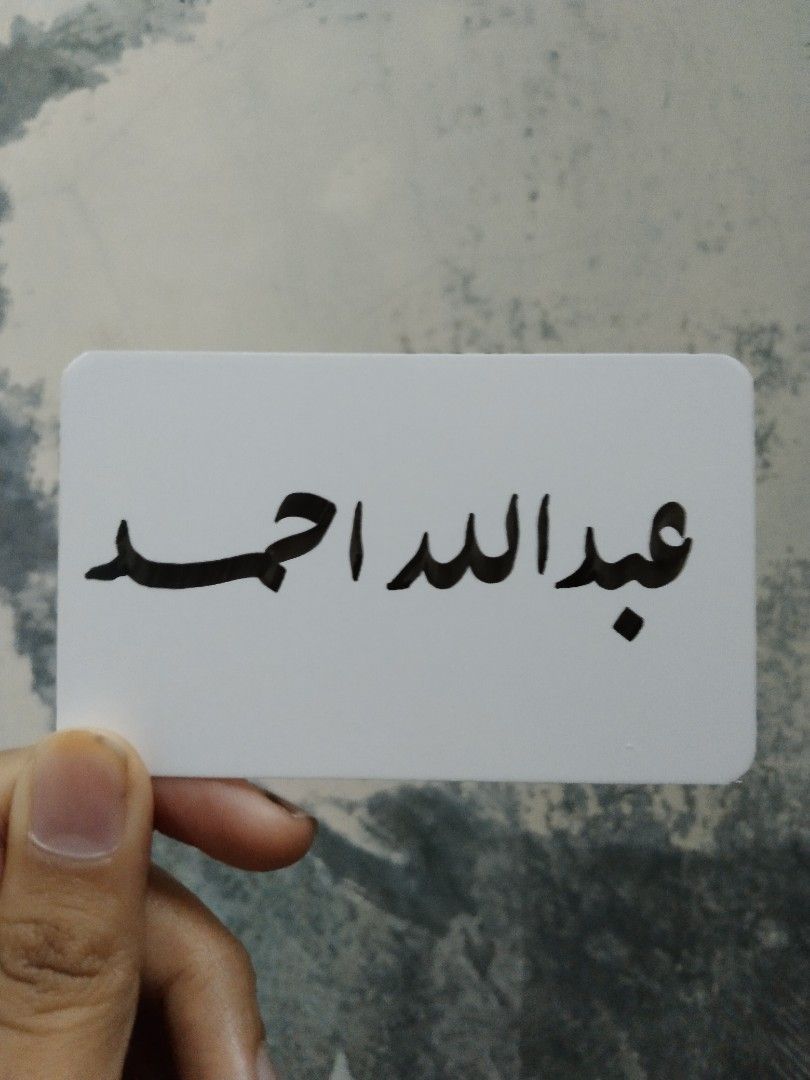 عبدالله احمد